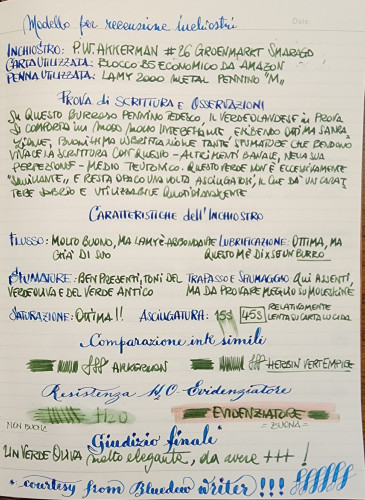 Modello per recensione inchiostri
Date:
INCHIOSTRO: P.W. AKKERMAN #26 GROENMARKT SMARAGD
CARTA UTILIZZATA: BLOCCO B5 ECONOMICO DA AMAZON
PENNA UTILIZZATA: LAMY 2000 METAL PENNINO "M"
PROVA DI SCRITTURA E OSSERVAZIONI
SU QUESTO BURROSO PENNINO TEDESCO, IL VERDE OLANDESE IN PROVA
SI COMPORTA IN MODO MOLTO INTERESSANTE, ESIBENDO OTTIMA SATURA-
ZIONE, BUONISSIMA LUBRIFICAZIONE TANTE SFUMATURE CHE RENDONO
VIVACE LA SCRITTURA CON QUESTO - ALTRIMENTI BANALE, NELLA SUA
PERFEZIONE - MEDIO TEUTONICO. QUESTO VERDE NON È ECCESSIVAMENTE
"BRILLANTE", E RESTA OPACO UNA VOLTA ASCIUGATOSI, IL CHE DÀ UN CARAT
TERE SOBRIO E UTILIZZABILE QUOTIDIANAMENTE
CARATTERISTICHE dell'INCHIOSTRO
FLUSSO: MOLTO BUONO, MA LAMY È ABBONDANTE LUBRIFICAZIONE: OTTIMA, MA
GIÀ DI SUO QUESTO M È DI SE UN BURRO
SFUMATURE: BEN PRESENTI, TONI DEL TRAPASSO E SPIUMAGGIO: QUI ASSENTI,
VERDE OLIVA E DEL VERDE ANTICO MA DA PROVARE MEGLIO SU MOLESKINE
SATURAZIONE: OTTIMA!! ASCIUGATURA: 15S 45S RELATIVAMENTE
LENTA SU CARTA LUCIDA
Comparazione ink simili
AKKERMAN HERBIN VERT EMPIRE
Resistenza H2O - Evidenziatore
H2O EVIDENZIATORE
NON BUONA = BUONA =
Giudizio finale
UN VERDE OLIVA molto elegante, da avere +++ !
* courtesy from Bluedew writer!!!